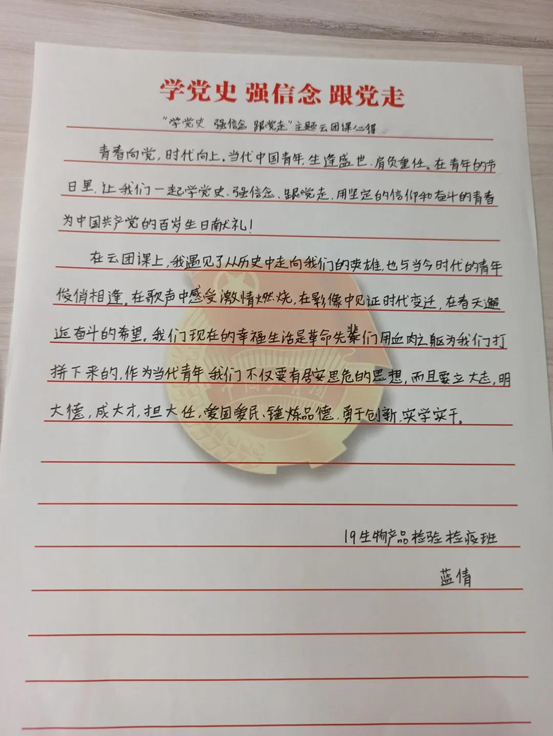 学党史 强信念 跟党走
"学党史 强信念 跟党走"主题云团课心得
青春向党，时代向上。当代中国青年，生逢盛世，肩负重任。在青年的节
日里，让我们一起学党史、强信念、跟党走，用坚定的信仰和奋斗的青春
为中国共产党的百岁生日献礼！
在云团课上，我遇见了从历史中走向我们的英雄，也与当今时代的青年
俊俏相逢。在歌声中感受激情燃烧，在影像中见证时代变迁，在春天邂
逅奋斗的希望。我们现在的幸福生活是革命先辈们用血肉之躯为我们打
拼下来的，作为当代青年我们不仅要有居安思危的思想，而且要立大志，明
大德，成大才，担大任，爱国爱民、锤炼品德、勇于创新、实学实干。
19生物产品检验检疫班
蓝倩